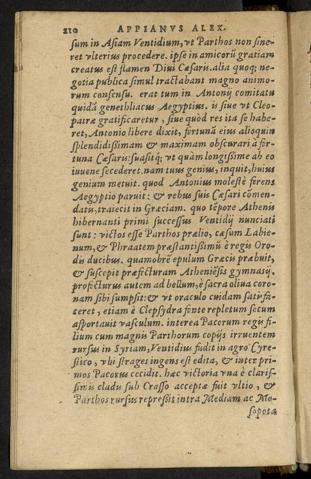 210 APPIANVS ALEX.
sum in Asiam Ventidium, vt Parthos non sine-
ret vlterius procedere. ipse in amicorũ gratiam
creatus est flamen Diui Cæsaris. alia quoq; ne-
gotia publica simul tractabant magno animo-
rum consensu. erat tum in Antonij comitatu
quidã genethliacus Aegyptius. is siue vt Cleo-
patræ gratificaretur, siue quòd res ita se habe-
ret, Antonio libere dixit, fortunã eius alioquin
splendidissimam & maximam obscurari à for-
tuna Cæsaris: suasitq; vt quàm longissime ab eo
iuuene secederet. nam tuus genius, inquit, huius
genium metuit. quod Antonius moleste ferens
Aegyptio paruit: & rebus suis Cæsari cõmen-
datis, traiecit in Græciam. quo tẽpore Athenis
hibernanti primi successus Ventidij nunciati
sunt: victos esse Parthos prælio, cæsum Labie-
num, & Phraatem præstantissimũ è regis Oro-
dis ducibus. quamobrẽ epulum Græcis præbuit,
& suscepit præfecturam Atheniẽsis gymnasij.
profecturus autem ad bellum, è sacra oliua coro-
nam sibi sumpsit: & vt oraculo cuidam satisfa-
ceret, etiam è Clepsydra fonte repletum secum
asportauit vasculum. interea Pacorum regis fi-
lium cum magnis Parthorum copijs irruentem
rursus in Syriam, Ventidius fudit in agro Cyre-
stico, vbi strages ingens est edita, & inter pri-
mos Pacorus cecidit. hæc victoria vna è claris-
simis cladis sub Crasso acceptæ fuit vltio, &
Parthos rursus repressit intra Mediam ac Me-
sopota